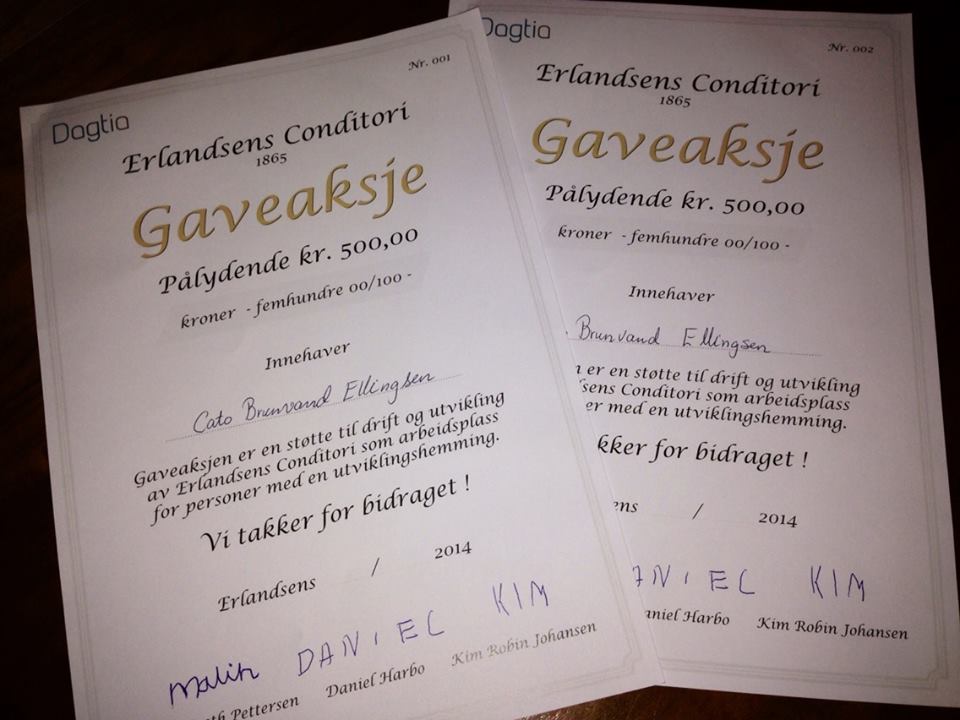 Dagtia
Nr. 001
Erlandsens Conditori
1865
Gaveaksje
Pålydende kr. 500,00
kroner - femhundre 00/100 -
Innehaver
Cato Brunvand Ellingsen
Gaveaksjen er en støtte til drift og utvikling
av Erlandsens Conditori som arbeidsplass
for personer med en utviklingshemming.
Vi takker for bidraget !
Erlandsens / 2014
Malin DANIEL KIM
Pettersen Daniel Harbo Kim Robin Johansen
Dagtia
Nr. 002
Erlandsens Conditori
1865
Gaveaksje
Pålydende kr. 500,00
kroner - femhundre 00/100 -
Innehaver
Brunvand Ellingsen
er en støtte til drift og utvikling
Conditori som arbeidsplass
med en utviklingshemming.
for bidraget !
/ 2014
KIM
Harbo Kim Robin Johansen